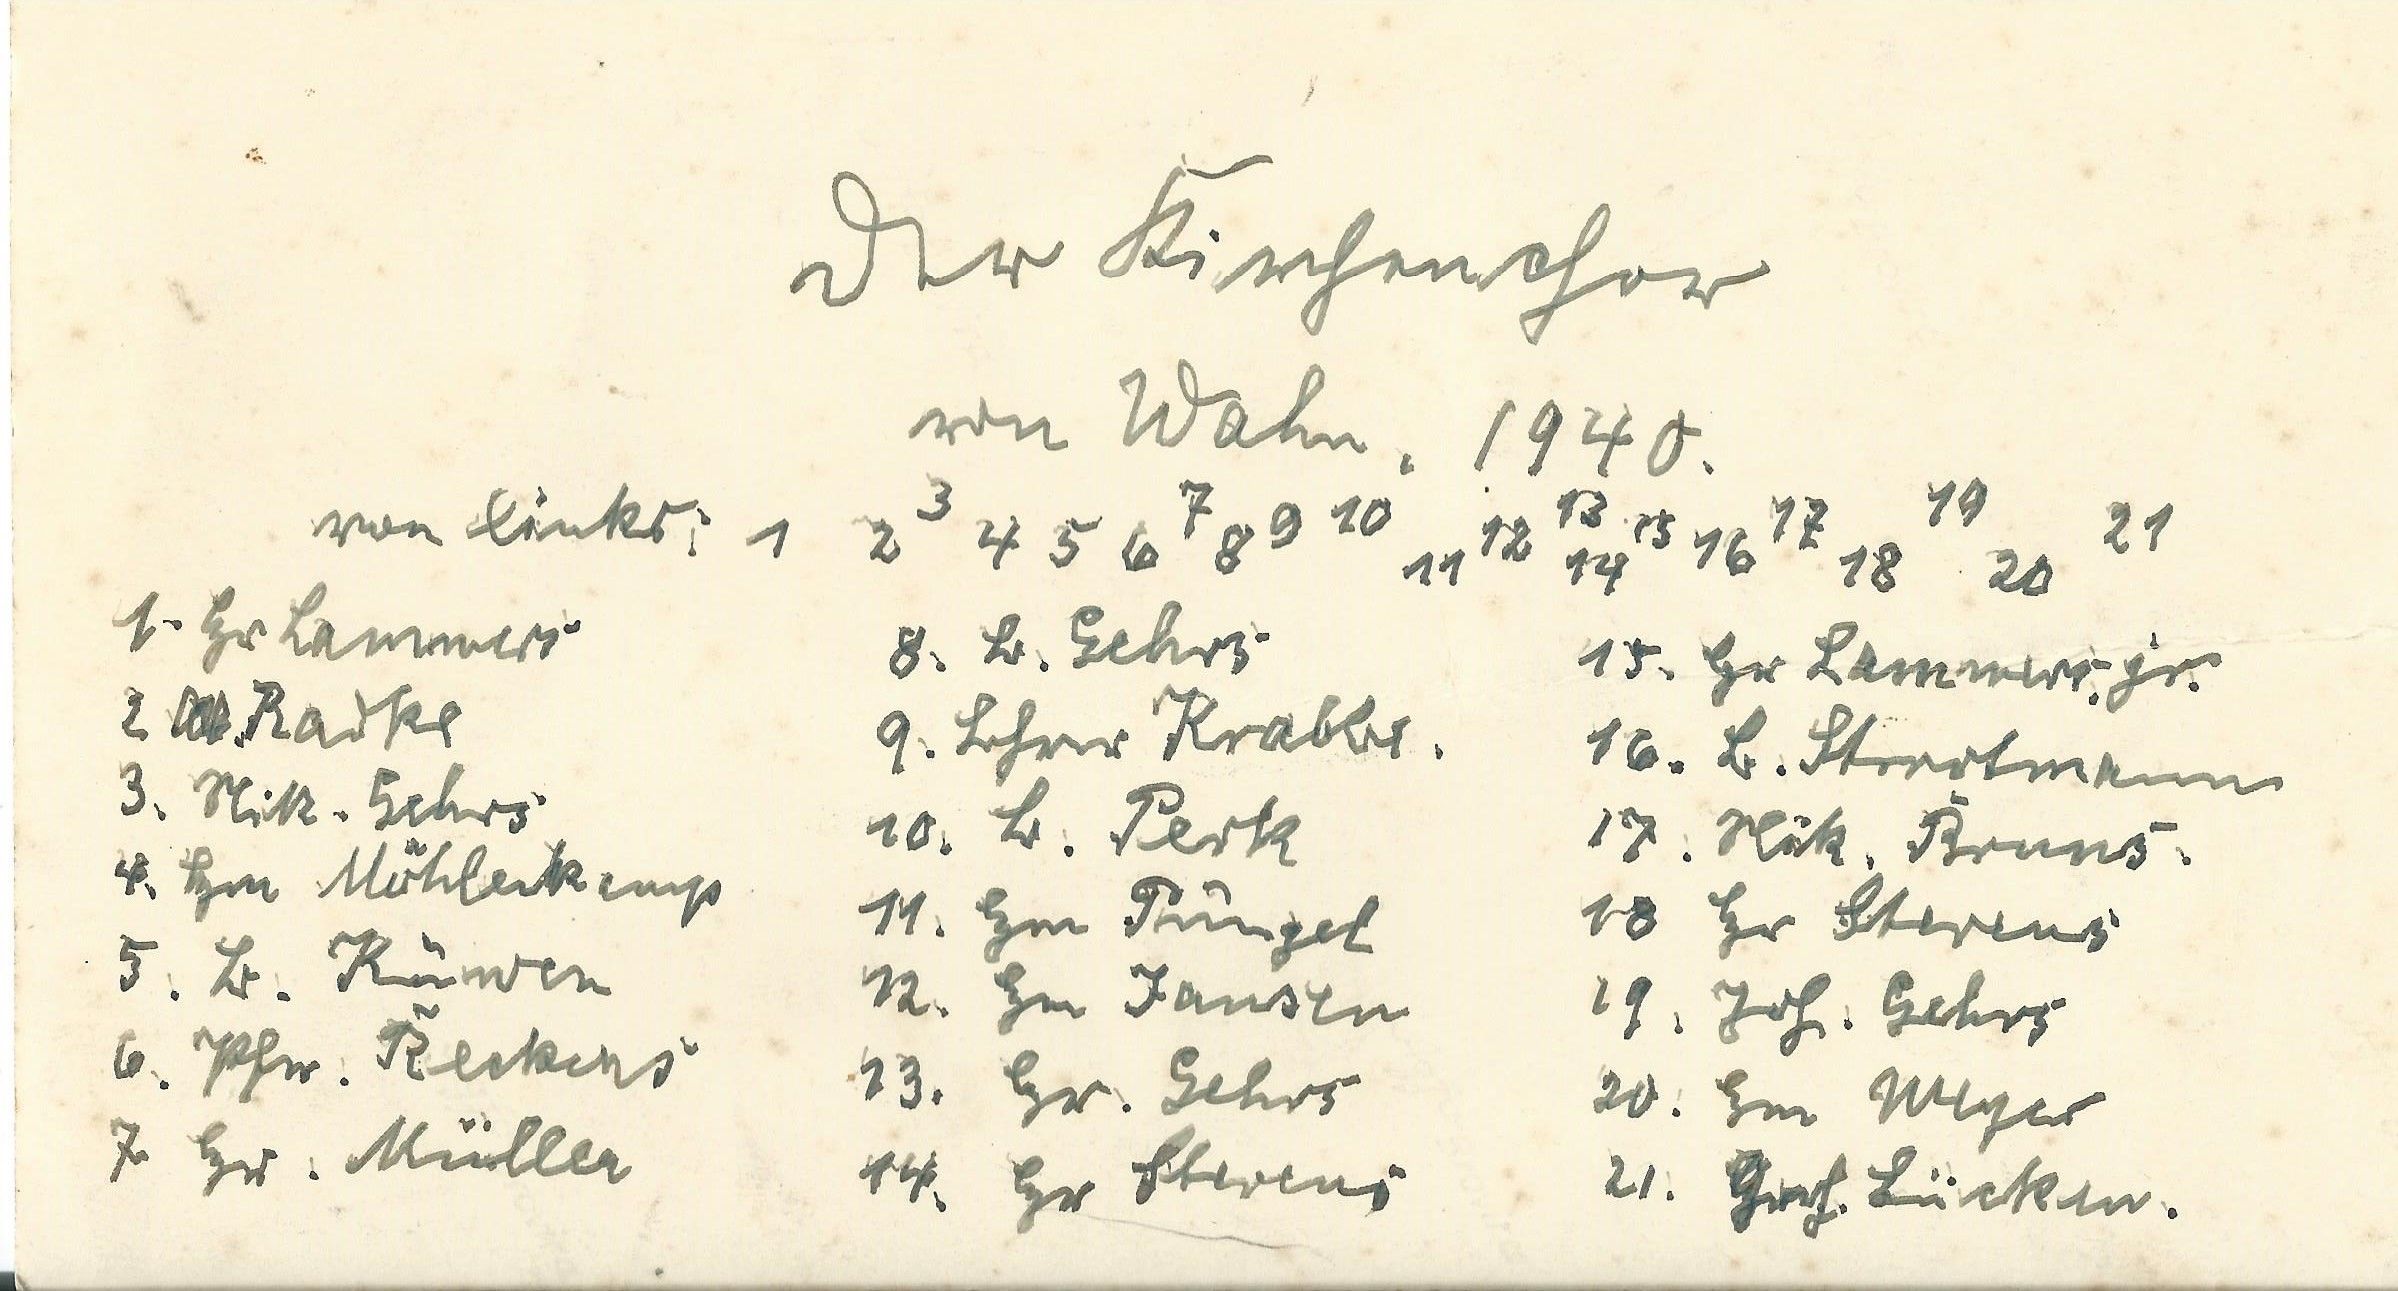 Der Kirchenchor
von Wahn. 1940.
von links: 1 2 3 4 5 6 7 8 9 10 11 12 13 14 15 16 17 18 19 20 21
1. Hr Lammers
2. Radke
3. Nik. Gehrs
4. Hm Möhlenkamp
5. B. Küwen
6. Pfr. Reckers
7 Hr. Müller
8. B. Gehrs
9. Lehrer Krabbe.
10. B. Perk
11. Hm Püngel
12. Hm Jansen
13. Hr. Gehrs
14. Hr Stevens
15. Hr Lammers. jr.
16. B. Strootmann
17. Nik. Bruns.
18 Hr Stevens
19. Joh. Gehrs
20. Hm Meyer
21. Gerh. Lücken.